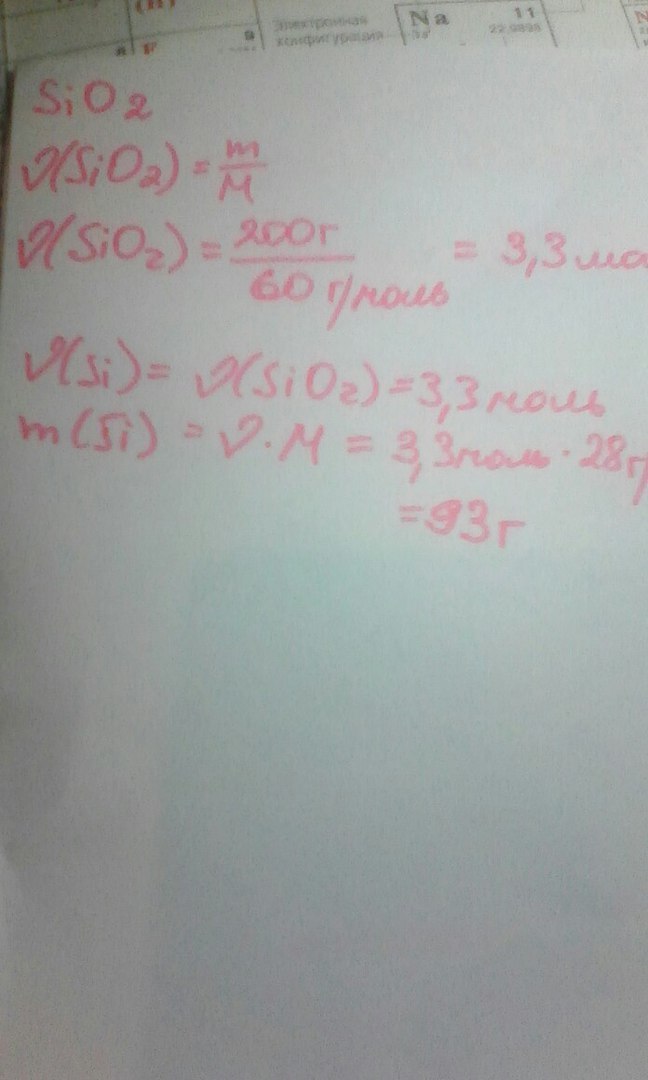 9
Электронная
конфигурация
Na
11
F
SiO2
ν(SiO2) = m/M
ν(SiO2) = 200г / 60 г/моль = 3,3 мо
ν(Si) = ν(SiO2) = 3,3 моль
m(Si) = ν · M = 3,3 моль · 28 г/
= 93 г